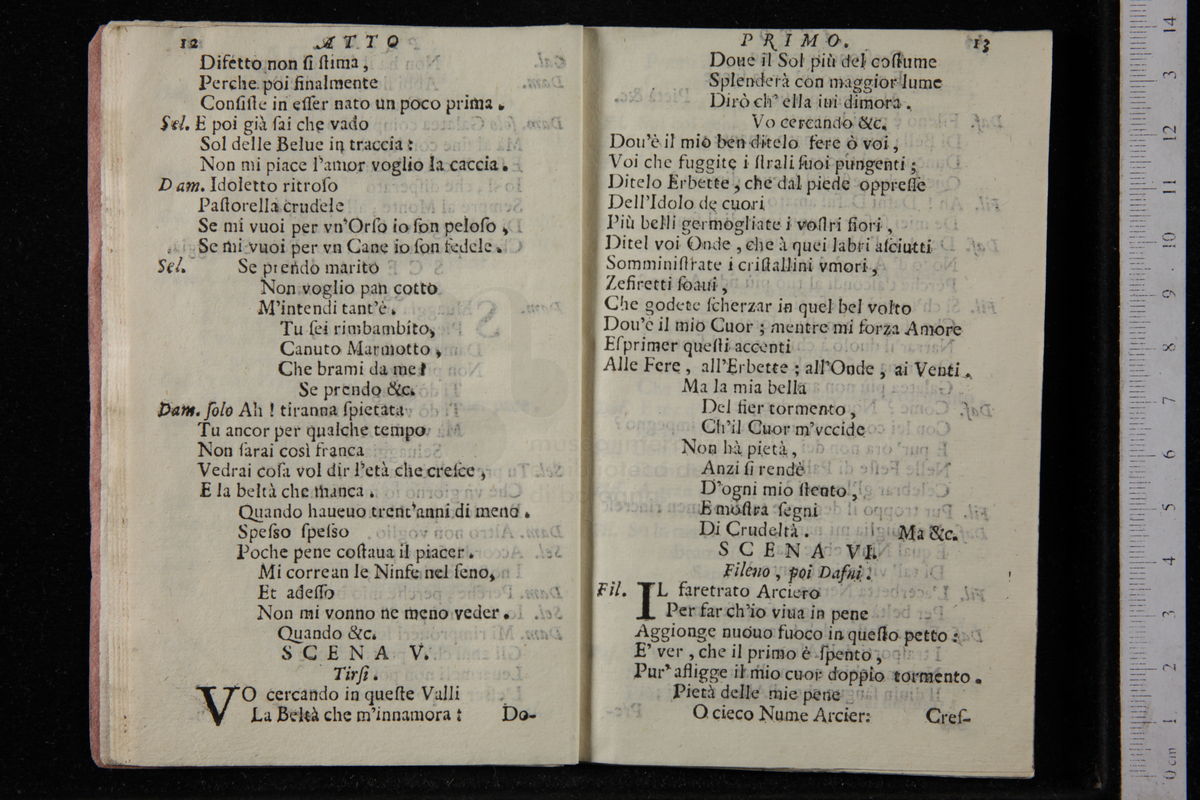 12 ATTO
Difetto non ſi ſtima,
Perche poi finalmente
Conſiſte in eſſer nato un poco prima.
Sel. E poi già ſai che vado
Sol delle Belue in traccia:
Non mi piace l'amor voglio la caccia.
Dam. Idoletto ritroſo
Paſtorella crudele
Se mi vuoi per vn'Orſo io ſon peloſo,
Se mi vuoi per vn Cane io ſon fedele.
Sel. Se prendo marito
Non voglio pan cotto
M'intendi tant'è.
Tu ſei rimbambito,
Canuto Marmotto,
Che brami da me?
Se prendo &c.
Dam. ſolo Ah! tiranna ſpietata
Tu ancor per qualche tempo
Non ſarai così franca
Vedrai coſa vol dir l'età che creſce,
E la beltà che manca.
Quando haueuo trent'anni di meno.
Speſso ſpeſso
Poche pene coſtaua il piacer.
Mi correan le Ninfe nel ſeno,
Et adeſſo
Non mi vonno ne meno veder.
Quando &c.
SCENA V.
Tirſi.
VO cercando in queſte Valli
La Beltà che m'innamora:
Do-
PRIMO. 13
Doue il Sol più del coſtume
Splenderà con maggior lume
Dirò ch' ella iui dimora.
Vo cercando &c.
Dou'è il mio ben ditelo fere ò voi,
Voi che fuggite i ſtrali ſuoi pungenti;
Ditelo Erbette, che dal piede oppreſſe
Dell'Idolo de cuori
Più belli germogliate i voſtri fiori,
Ditel voi Onde, che à quei labri aſciutti
Somminiſtrate i criſtallini vmori,
Zefiretti ſoaui,
Che godete ſcherzar in quel bel volto
Dou'è il mio Cuor; mentre mi forza Amore
Eſprimer queſti accenti
Alle Fere, all'Erbette; all'Onde, ai Venti.
Ma la mia bella
Del fier tormento,
Ch'il Cuor m'vccide
Non hà pietà,
Anzi ſi rende
D'ogni mio ſtento,
E moſtra ſegni
Di Crudeltà. Ma &c.
SCENA VI.
Fileno, poi Dafni.
Fil. IL faretrato Arciero
Per far ch'io viua in pene
Aggionge nuouo fuoco in queſto petto:
E' ver, che il primo è ſpento,
Pur' afligge il mio cuor doppio tormento.
Pietà delle mie pene
O cieco Nume Arcier:
Creſ-